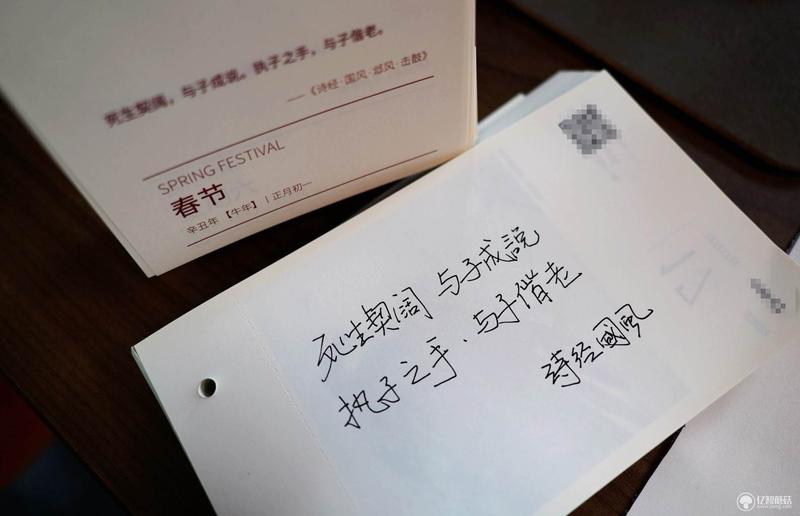 死生契阔，与子成说。执子之手，与子偕老。
——《诗经·国风·邶风·击鼓》
SPRING FESTIVAL
春节
辛丑年【牛年】| 正月初一
死生契阔 与子成説
执子之手、与子偕老
诗经國風
亿智蘑菇